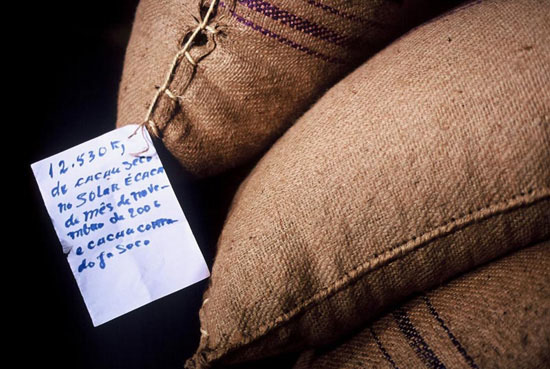 12.530K,
de cacau seco
no SOLAR É CACA
do mês de nove-
mbro de 2006
e cacau conta
do ja seco